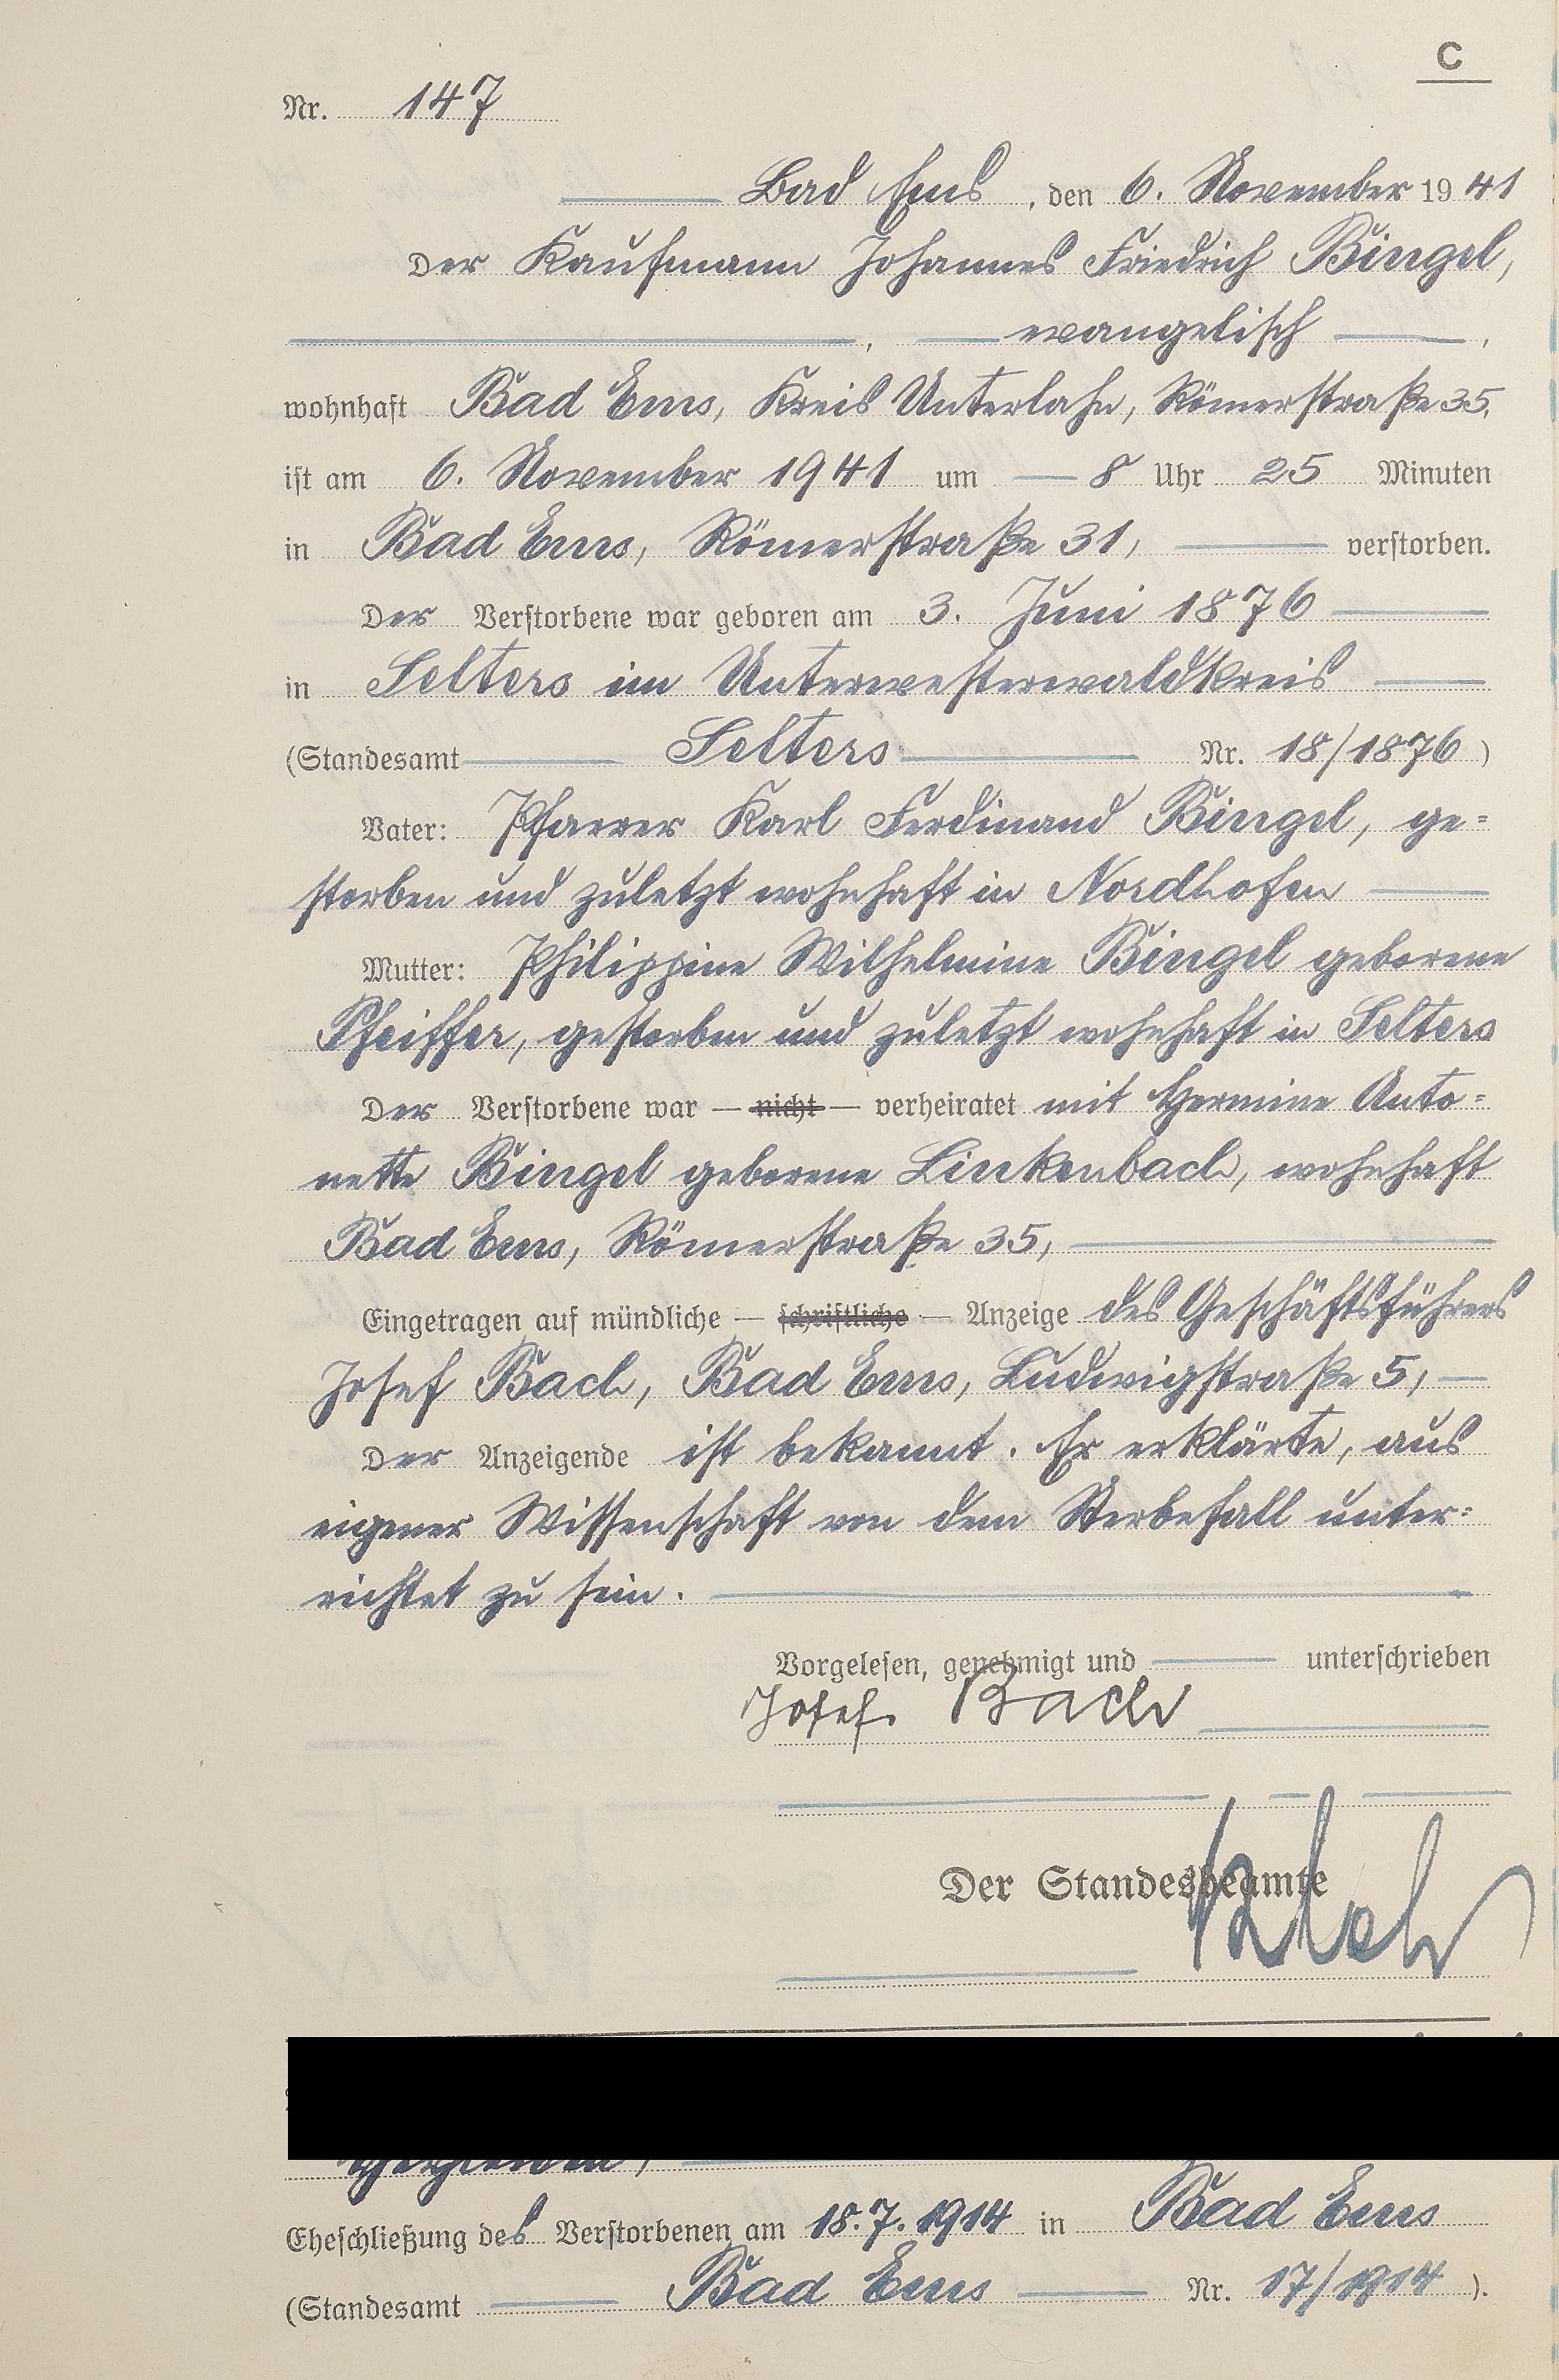 C
Nr. 147
Bad Ems, den 6. November 1941
Der Kaufmann Johannes Friedrich Bingel,
, evangelisch,
wohnhaft Bad Ems, Kreis Unterlahn, Römerstraße 35,
ist am 6. November 1941 um 8 Uhr 25 Minuten
in Bad Ems, Römerstraße 31, verstorben.
Der Verstorbene war geboren am 3. Juni 1876
in Selters im Unterwesterwaldkreis
(Standesamt Selters Nr. 18/1876)
Vater: Pfarrer Karl Ferdinand Bingel, ge=
storben und zuletzt wohnhaft in Nordhofen
Mutter: Philippine Wilhelmine Bingel geborene
Pfeiffer, gestorben und zuletzt wohnhaft in Selters
Der Verstorbene war — nicht — verheiratet mit Hermine Anto=
nette Bingel geborene Linkenbach, wohnhaft
Bad Ems, Römerstraße 35,
Eingetragen auf mündliche — schriftliche — Anzeige des Geschäftsführers
Josef Bach, Bad Ems, Ludwigstraße 5,
Der Anzeigende ist bekannt. Er erklärte, aus
eigener Wissenschaft von dem Sterbefall unter=
richtet zu sein.
Vorgelesen, genehmigt und unterschrieben
Josef Bach
Der Standesbeamte
Eheschließung des Verstorbenen am 18.7.1914 in Bad Ems
(Standesamt Bad Ems Nr. 17/1914).